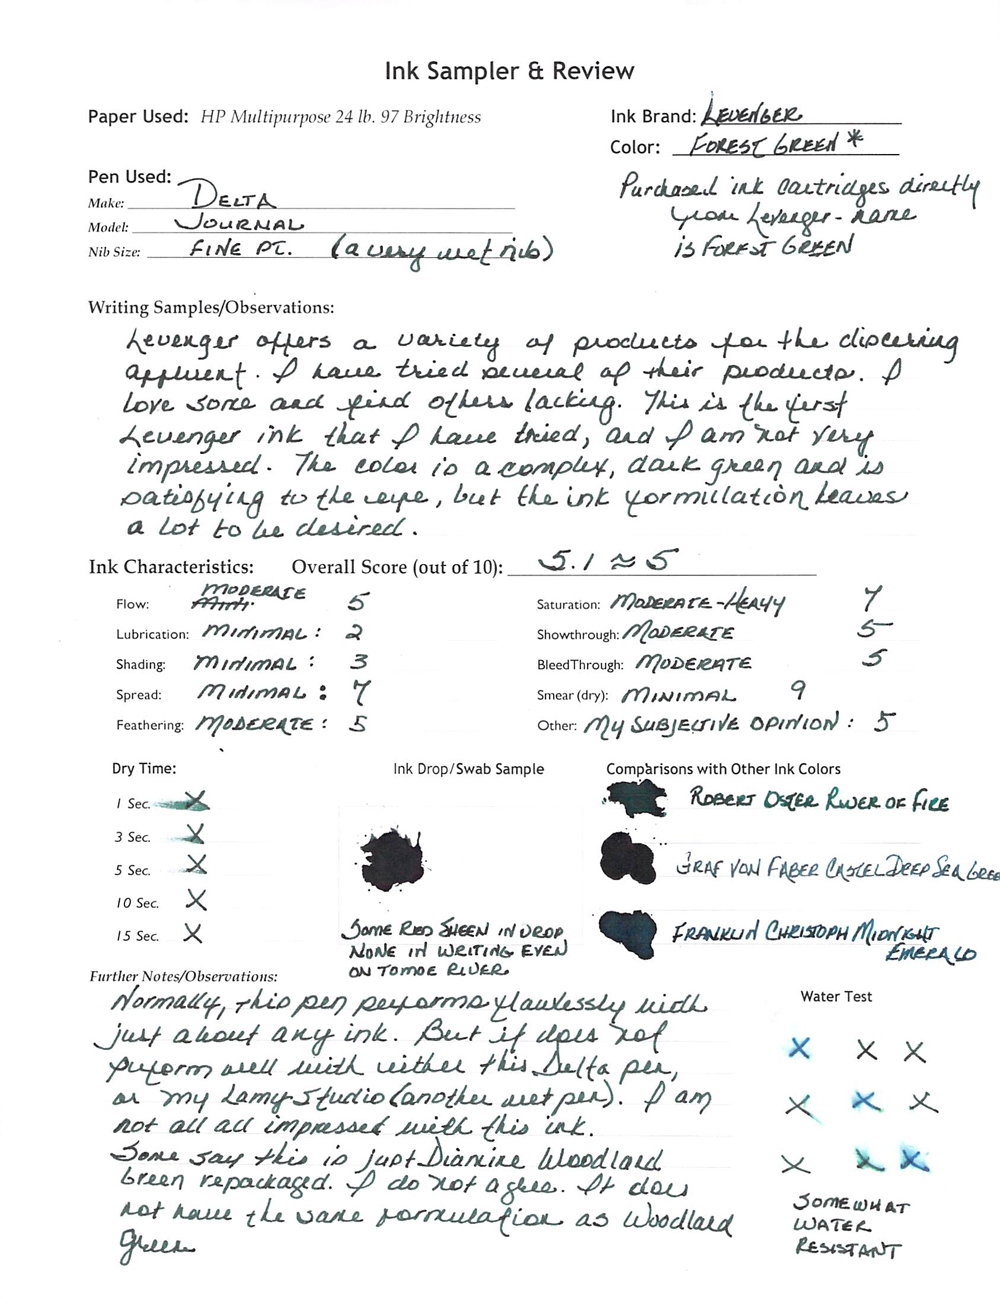 Ink Sampler & Review
Paper Used: HP Multipurpose 24 lb. 97 Brightness
Ink Brand: LEVENGER
Color: FOREST GREEN *
Purchased ink cartridges directly
from Levenger - name
is FOREST GREEN
Pen Used:
Make: DELTA
Model: JOURNAL
Nib Size: FINE PT. (a very wet nib)
Writing Samples/Observations:
Levenger offers a variety of products for the discerning
affluent. I have tried several of their products. I
love some and find others lacking. This is the first
Levenger ink that I have tried, and I am not very
impressed. The color is a complex, dark green and is
satisfying to the eye, but the ink formulation leaves
a lot to be desired.
Ink Characteristics: Overall Score (out of 10): 5.1 ≈ 5
Flow: MODERATE 5
Lubrication: MINIMAL: 2
Shading: MINIMAL: 3
Spread: MINIMAL: 7
Feathering: MODERATE: 5
Saturation: MODERATE-HEAVY 7
Showthrough: MODERATE 5
BleedThrough: MODERATE 5
Smear (dry): MINIMAL 9
Other: MY SUBJECTIVE OPINION: 5
Dry Time:
1 Sec. X
3 Sec. X
5 Sec. X
10 Sec. X
15 Sec. X
Ink Drop/Swab Sample
SOME RED SHEEN IN DROP
NONE IN WRITING EVEN
ON TOMOE RIVER
Comparisons with Other Ink Colors
ROBERT OSTER RIVER OF FIRE
GRAF VON FABER CASTEL DEEP SEA GREE
FRANKLIN CHRISTOPH MIDNIGHT
EMERALD
Further Notes/Observations:
Normally, this pen performs flawlessly with
just about any ink. But it does not
perform well with either this Delta pen,
or my Lamy Studio (another wet pen). I am
not all all impressed with this ink.
Some say this is just Diamine Woodland
Green repackaged. I do not agree. It does
not have the same formulation as Woodland
Green
Water Test
X X X
X X X
X X X
SOMEWHAT
WATER
RESISTANT